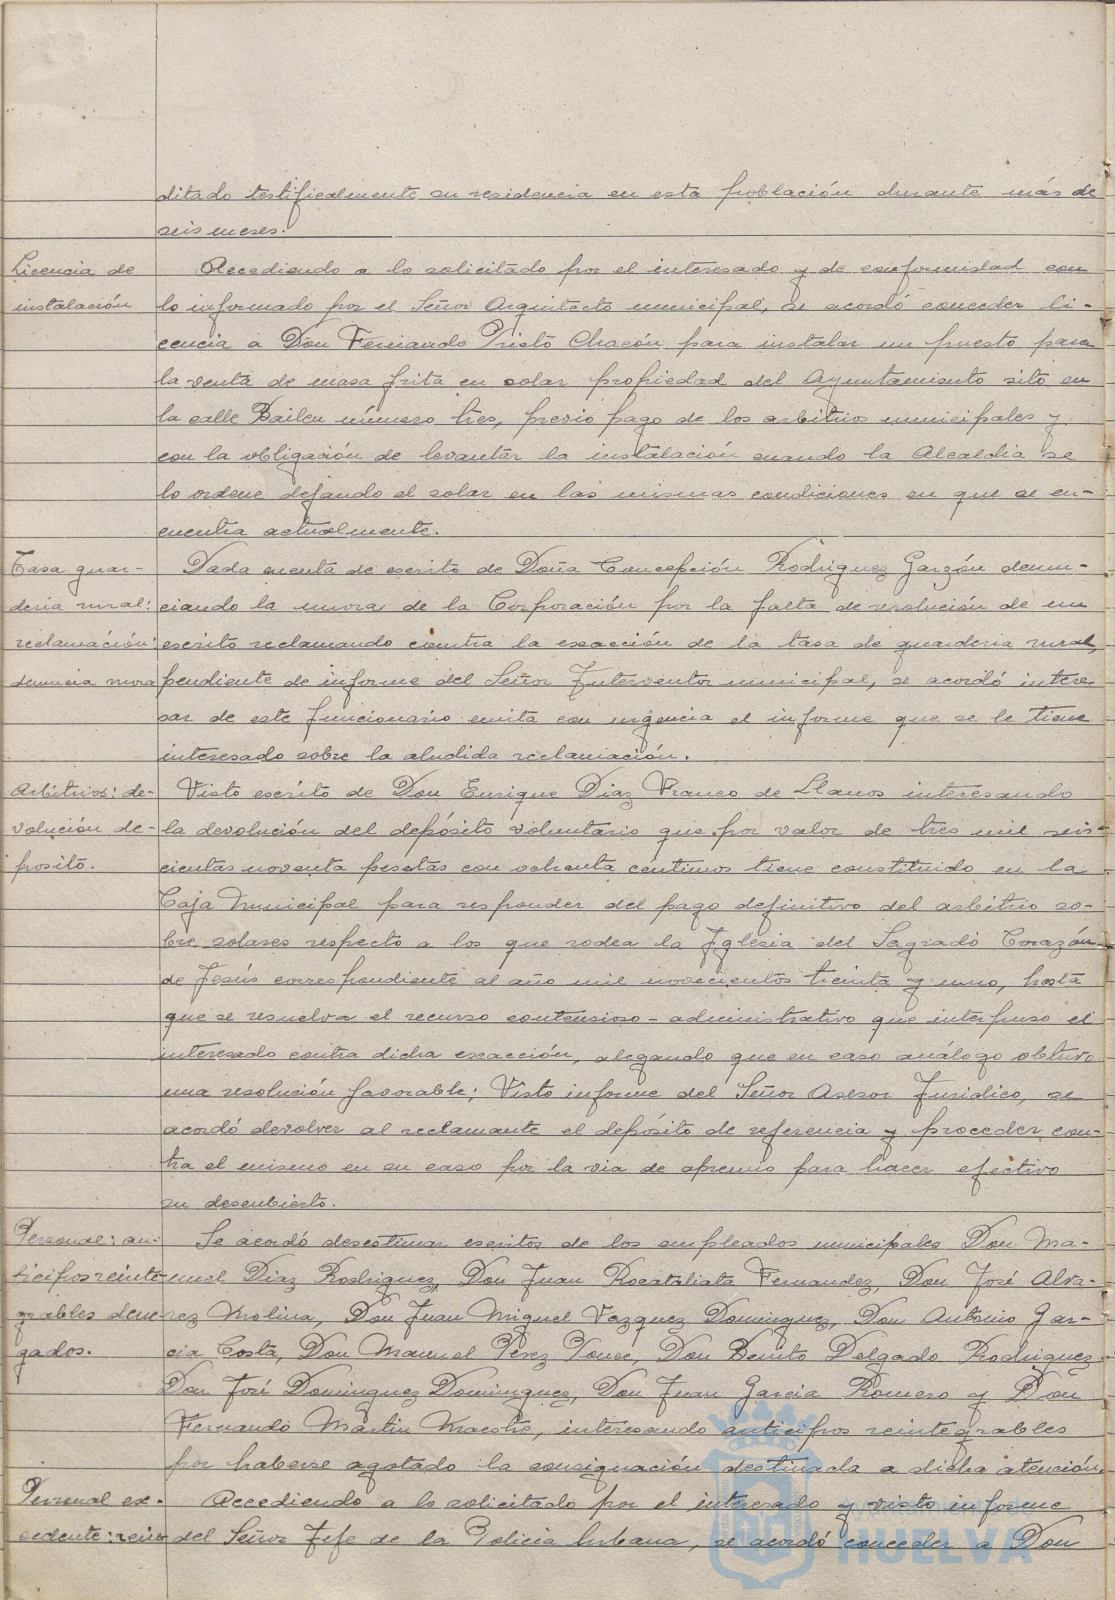 ditado testificalmente su residencia en esta población durante más de
seis meses.
Licencia de
instalación
Accediendo a lo solicitado por el interesado y de conformidad con
lo informado por el Señor Arquitecto municipal, se acordó conceder li-
cencia a Don Fernando Prieto Chacón para instalar un puesto para
la venta de masa frita en solar propiedad del Ayuntamiento sito en
la calle Bailen número tres, previo pago de los arbitrios municipales y
con la obligación de levantar la instalación cuando la Alcaldia se
lo ordene dejando el solar en las mismas condiciones en que se en-
cuentra actualmente.
Tasa guar-
deria rural:
reclamación:
denuncia mora
Dada cuenta de escrito de Doña Concepción Rodriguez Garzón denun-
ciando la mora de la Corporación por la falta de resolución de un
escrito reclamando contra la exacción de la tasa de guarderia rural,
pendiente de informe del Señor Interventor municipal, se acordó intere-
sar de este funcionario emita con urgencia el informe que se le tiene
interesado sobre la aludida reclamación.
Arbitrios: de-
volución de-
posito.
Visto escrito de Don Enrique Diaz Franco de Llanos interesando
la devolución del depósito voluntario que por valor de tres mil seis-
cientas noventa pesetas con ochenta céntimos tiene constituido en la
Caja Municipal para responder del pago definitivo del arbitrio so-
bre solares respecto a los que rodea la Iglesia del Sagrado Corazón
de Jesús correspondiente al año mil novecientos treinta y uno, hasta
que se resuelva el recurso contensioso-administrativo que interpuso el
interesado contra dicha exacción, alegando que en caso análogo obtuvo
una resolución favorable; Visto informe del Señor Asesor Juridico, se
acordó devolver al reclamante el depósito de referencia y proceder con-
tra el mismo en su caso por la via de apremio para hacer efectivo
su descubierto.
Personal: an-
ticipos reinte-
grables dene-
gados.
Se acordó desestimar escritos de los empleados municipales Don Ma-
nuel Diaz Rodriguez, Don Juan Rocatallata Fernandez, Don José Alva-
rez Molina, Don Juan Miguel Vazquez Dominguez, Don Antonio Gar-
cia Costa, Don Manuel Perez Ponce, Don Benito Delgado Rodriguez
Don José Dominguez Dominguez, Don Juan Garcia Romero y Don
Fernando Martin Maestre, interesando anticipos reintegrables
por haberse agotado la consignación destinada a dicha atención.
Personal ex-
cedente: rein-
Accediendo a lo solicitado por el interesado y visto informe
del Señor Jefe de la Policia Urbana, se acordó conceder a Don
Ayuntamiento de
HUELVA